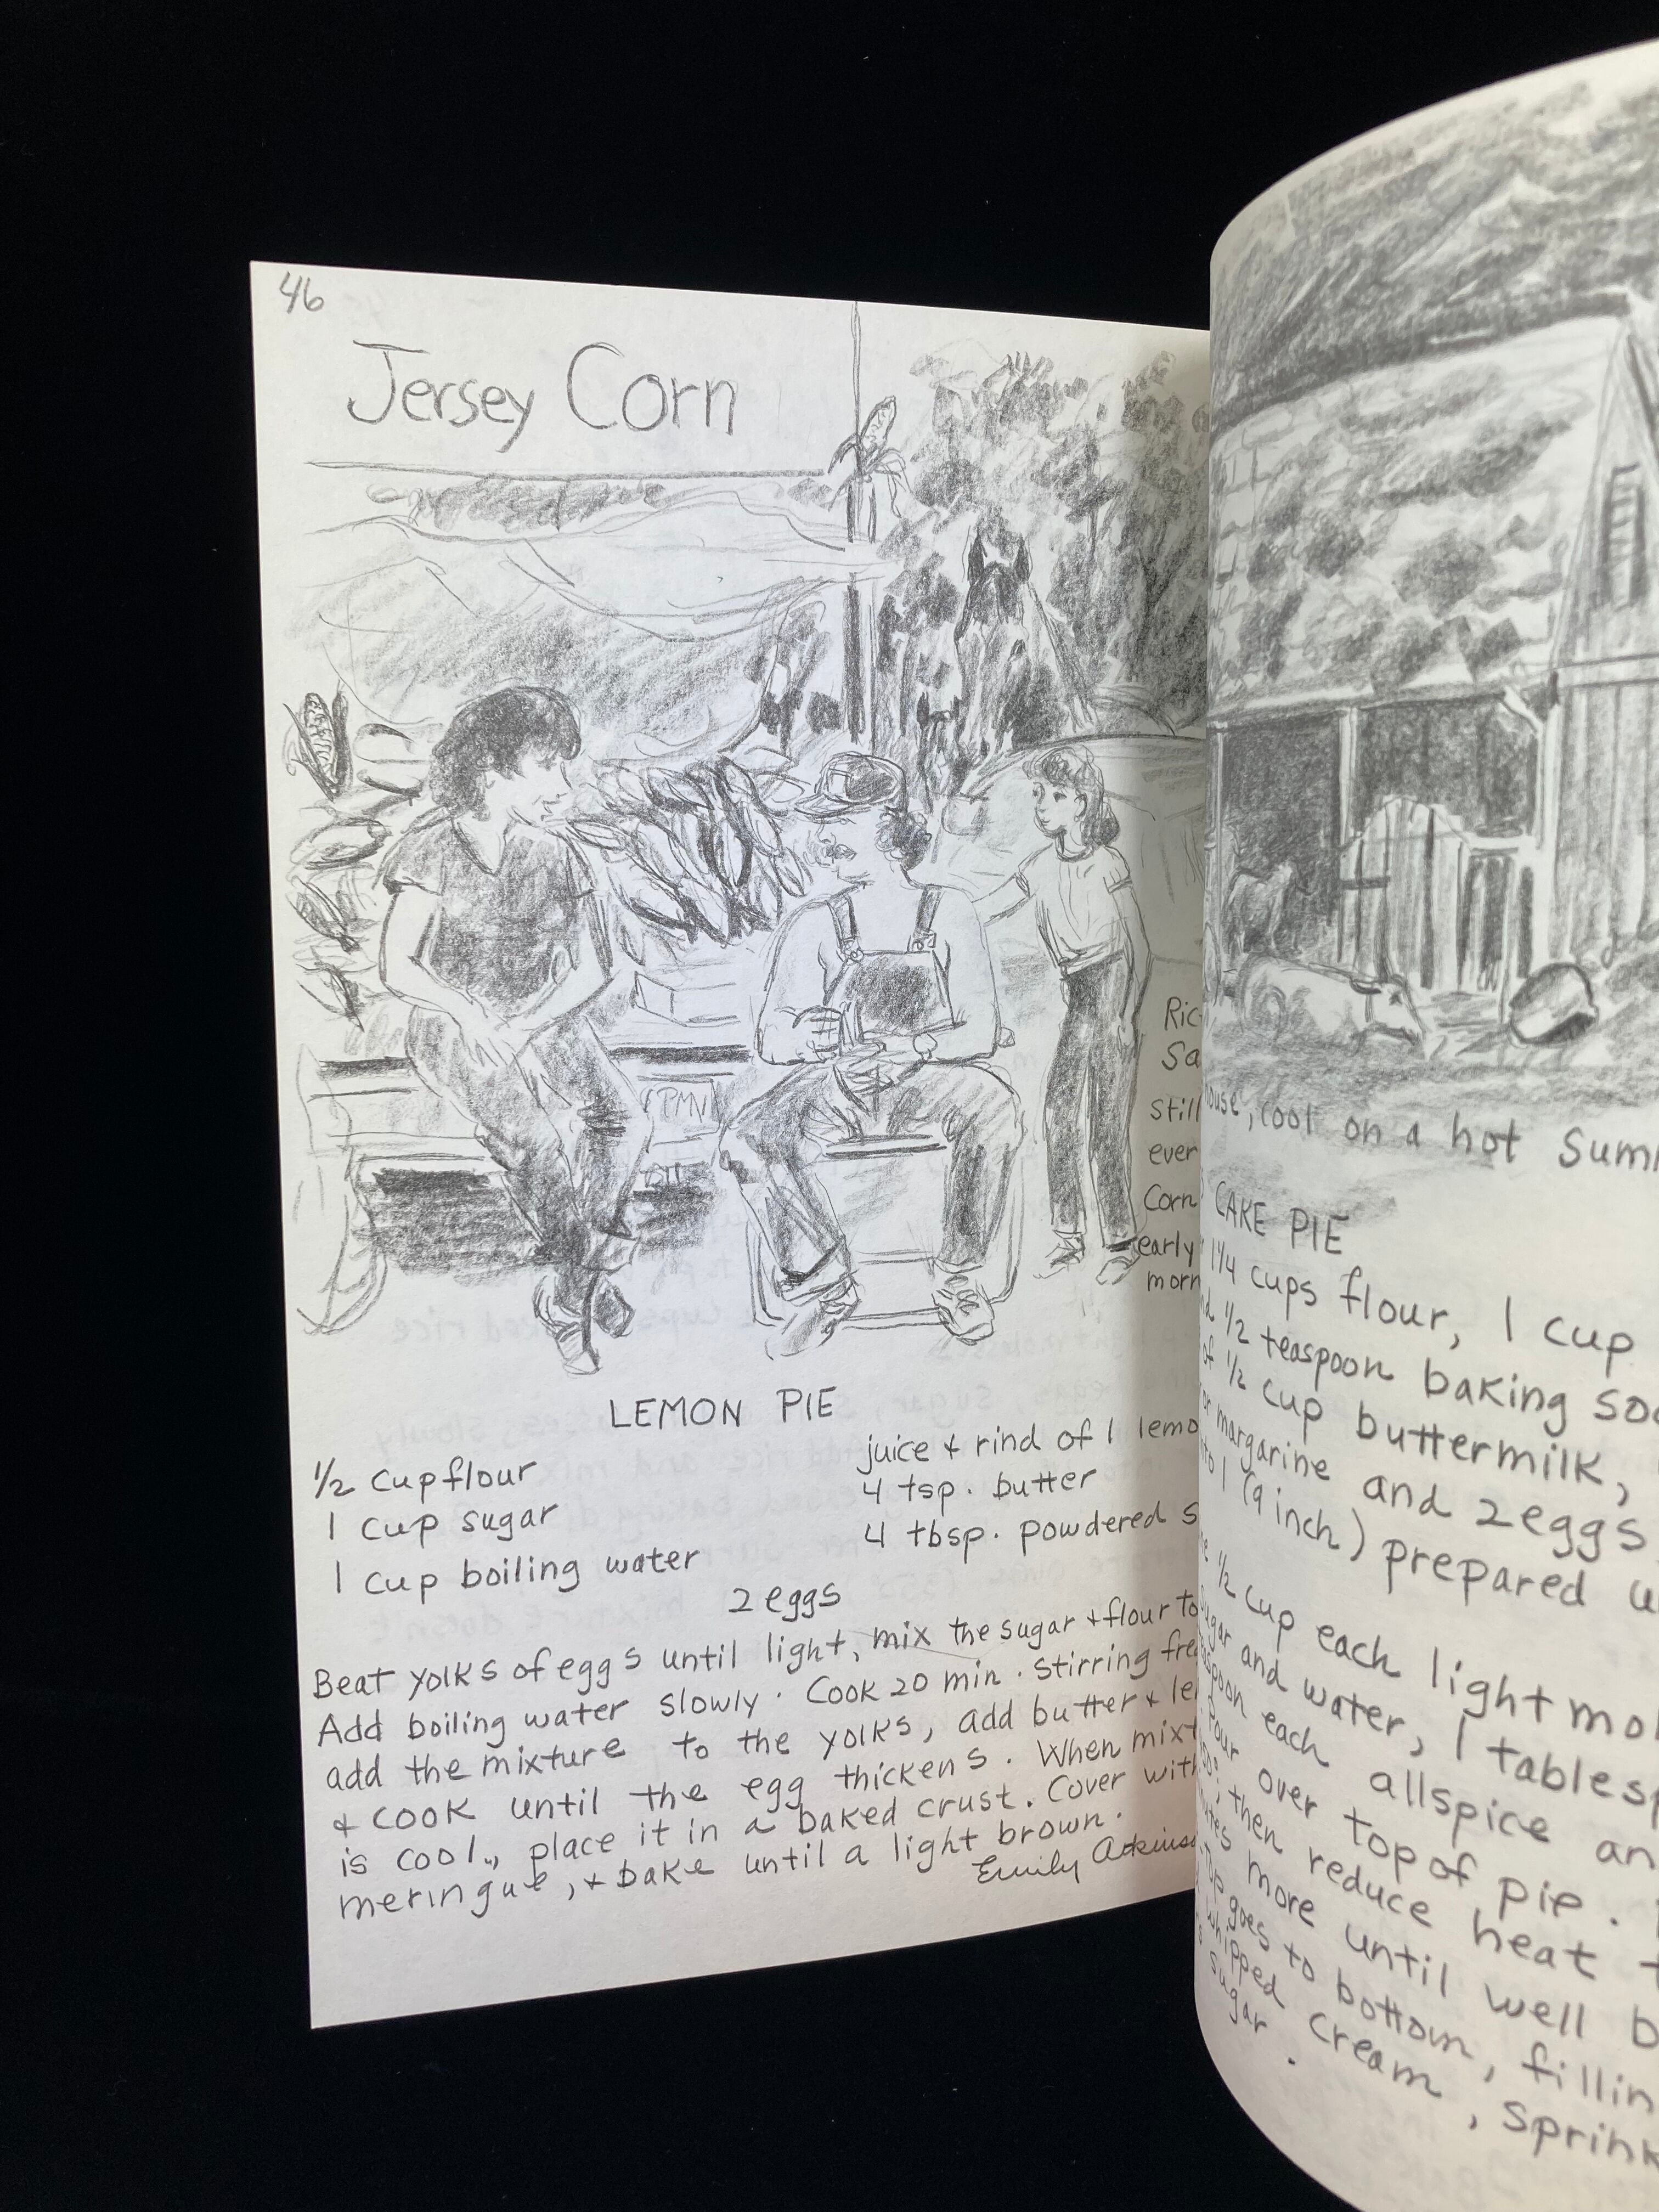 46
Jersey Corn
PMV
Ric
Sa
still
ever
Corn
early
morn
LEMON PIE
1/2 cup flour
1 cup sugar
1 cup boiling water
juice + rind of 1 lemo
4 tsp. butter
4 tbsp. powdered s
2 eggs
Beat yolks of eggs until light, mix the sugar + flour to
Add boiling water slowly. Cook 20 min. stirring fre
add the mixture to the yolks, add butter + le
+ cook until the egg thickens. When mixt
is cool, place it in a baked crust. Cover with
meringue, + bake until a light brown.
Emily Atkinso
ouse, cool on a hot Summ
CAKE PIE
1 1/4 cups flour, 1 cup
1/2 teaspoon baking so
of 1/2 cup buttermilk,
or margarine and 2 eggs
into 1 (9 inch) prepared u
1/2 cup each light mol
sugar and water, 1 tablesp
aspoon each allspice an
Pour over top of pie.
then reduce heat t
nutes more until well b
Top goes to bottom, fillin
whipped cream, sprink
sugar.